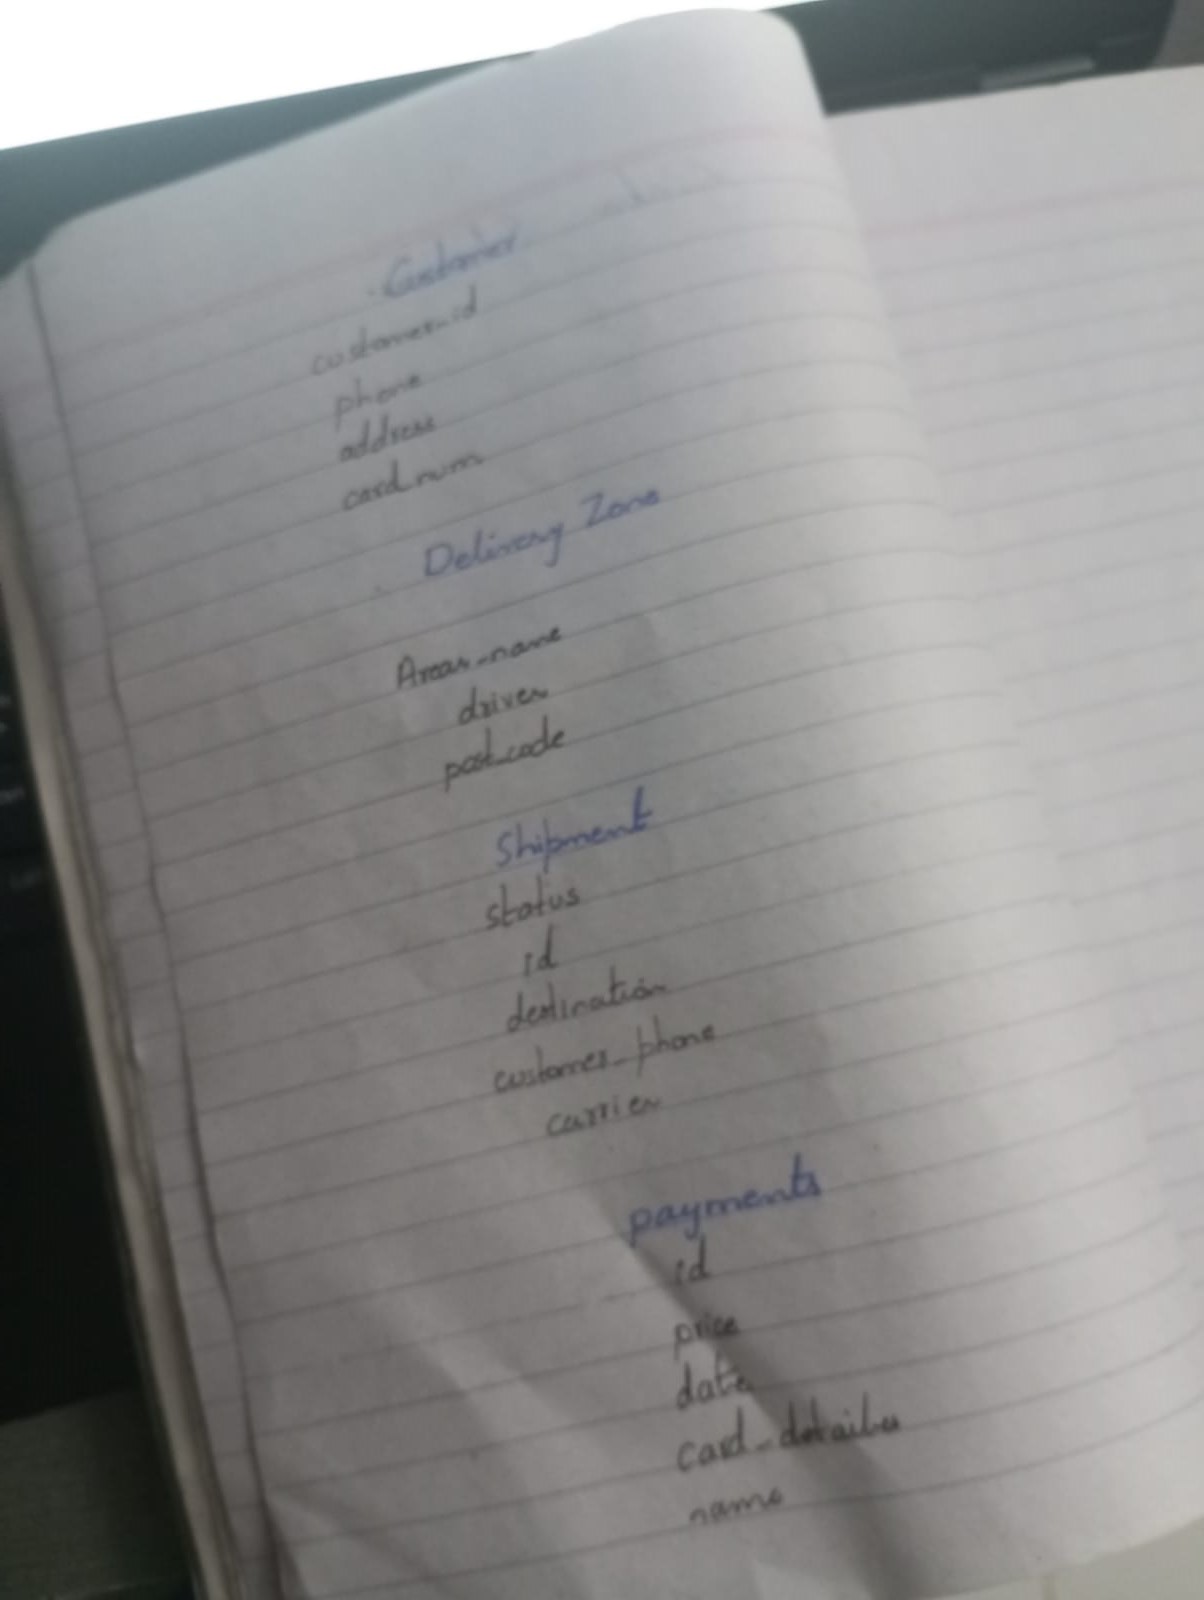 Customer
customer_id
phone
address
card_num
Delivery Zone
Areas_name
driver
post_code
Shipment
status
id
destination
customer_phone
carrier
payments
id
price
date
card_detailes
name